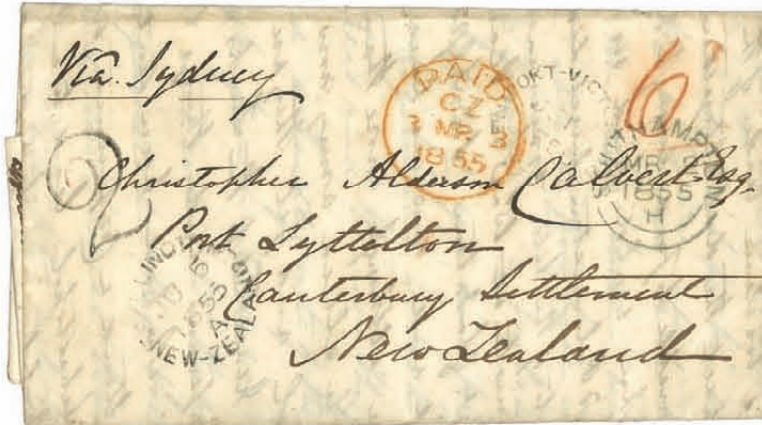 Via. Sydney
6
PAID
CZ
3 MR 3
1855
PORT-VICT
MR
1855
H
2
Christopher Alderson Calvert Esq.
Port Lyttelton
Canterbury Settlement
New Zealand
1855
NEW-ZEALA